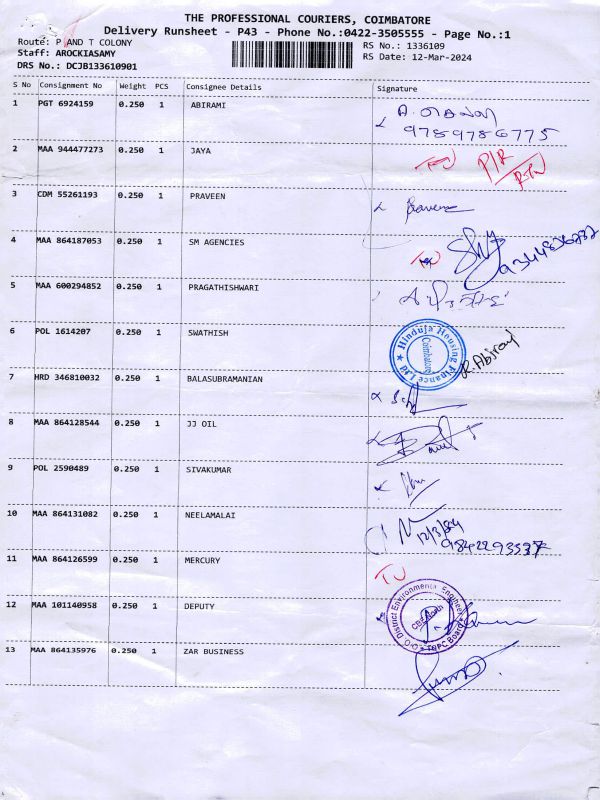 THE PROFESSIONAL COURIERS, COIMBATORE
Delivery Runsheet - P43 - Phone No.:0422-3505555 - Page No.:1
Route: P AND T COLONY RS No.: 1336109
Staff: AROCKIASAMY RS Date: 12-Mar-2024
DRS No.: DCJB133610901
S No Consignment No Weight PCS Consignee Details Signature
1 PGT 6924159 0.250 1 ABIRAMI
9789786775
2 MAA 944477273 0.250 1 JAYA P/R
3 CDM 55261193 0.250 1 PRAVEEN Praveen
4 MAA 864187053 0.250 1 SM AGENCIES
5 MAA 600294852 0.250 1 PRAGATHISHWARI
6 POL 1614207 0.250 1 SWATHISH Hinduja Housing Finance Ltd Coimbatore
7 HRD 346810032 0.250 1 BALASUBRAMANIAN
8 MAA 864128544 0.250 1 JJ OIL
9 POL 2590489 0.250 1 SIVAKUMAR
10 MAA 864131082 0.250 1 NEELAMALAI
11 MAA 864126599 0.250 1 MERCURY
12 MAA 101140958 0.250 1 DEPUTY O/O District Environmental Engineer TNPC Board
13 MAA 864135976 0.250 1 ZAR BUSINESS